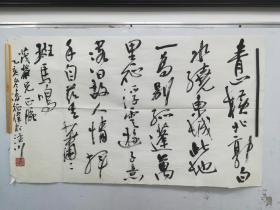 青山橫北郭白
水繞東城此地
一為別孤蓬萬
里征浮雲遊子意
落日故人情揮
手自茲去蕭〻
班馬鳴
兄正腕
乙亥冬